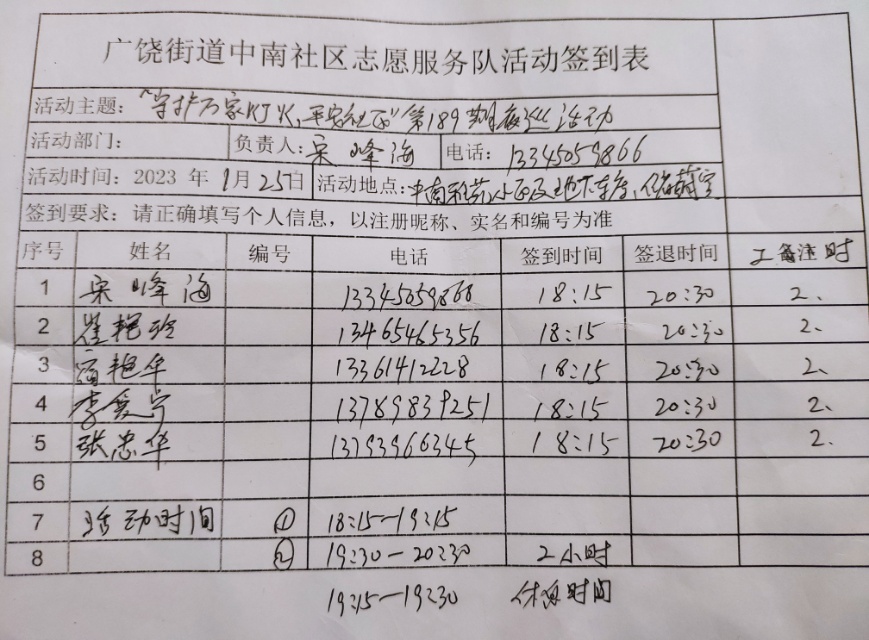 广饶街道中南社区志愿服务队活动签到表
活动主题: "守护万家灯火,平安社区"第189期夜巡活动
活动部门: 负责人: 宋峰海 电话: 13345059866
活动时间: 2023 年 1月 25日 活动地点: 中南
签到要求: 请正确填写个人信息,以注册昵称、实名和编号为准
序号 姓名 编号 电话 签到时间 签退时间 工备注时
1 宋峰海 13345059868 18:15 20:30 2、
2 崔艳玲 13465465356 18:15 20:30 2、
3 艳华 13361412228 18:15 20:30 2、
4 李爱宁 13789839251 18:15 20:30 2、
5 张忠华 13793966345 18:15 20:30 2.
6
7 活动时间 ① 18:15—19:15
8 ② 19:30—20:30 2小时
19:15—19:30 休息时间